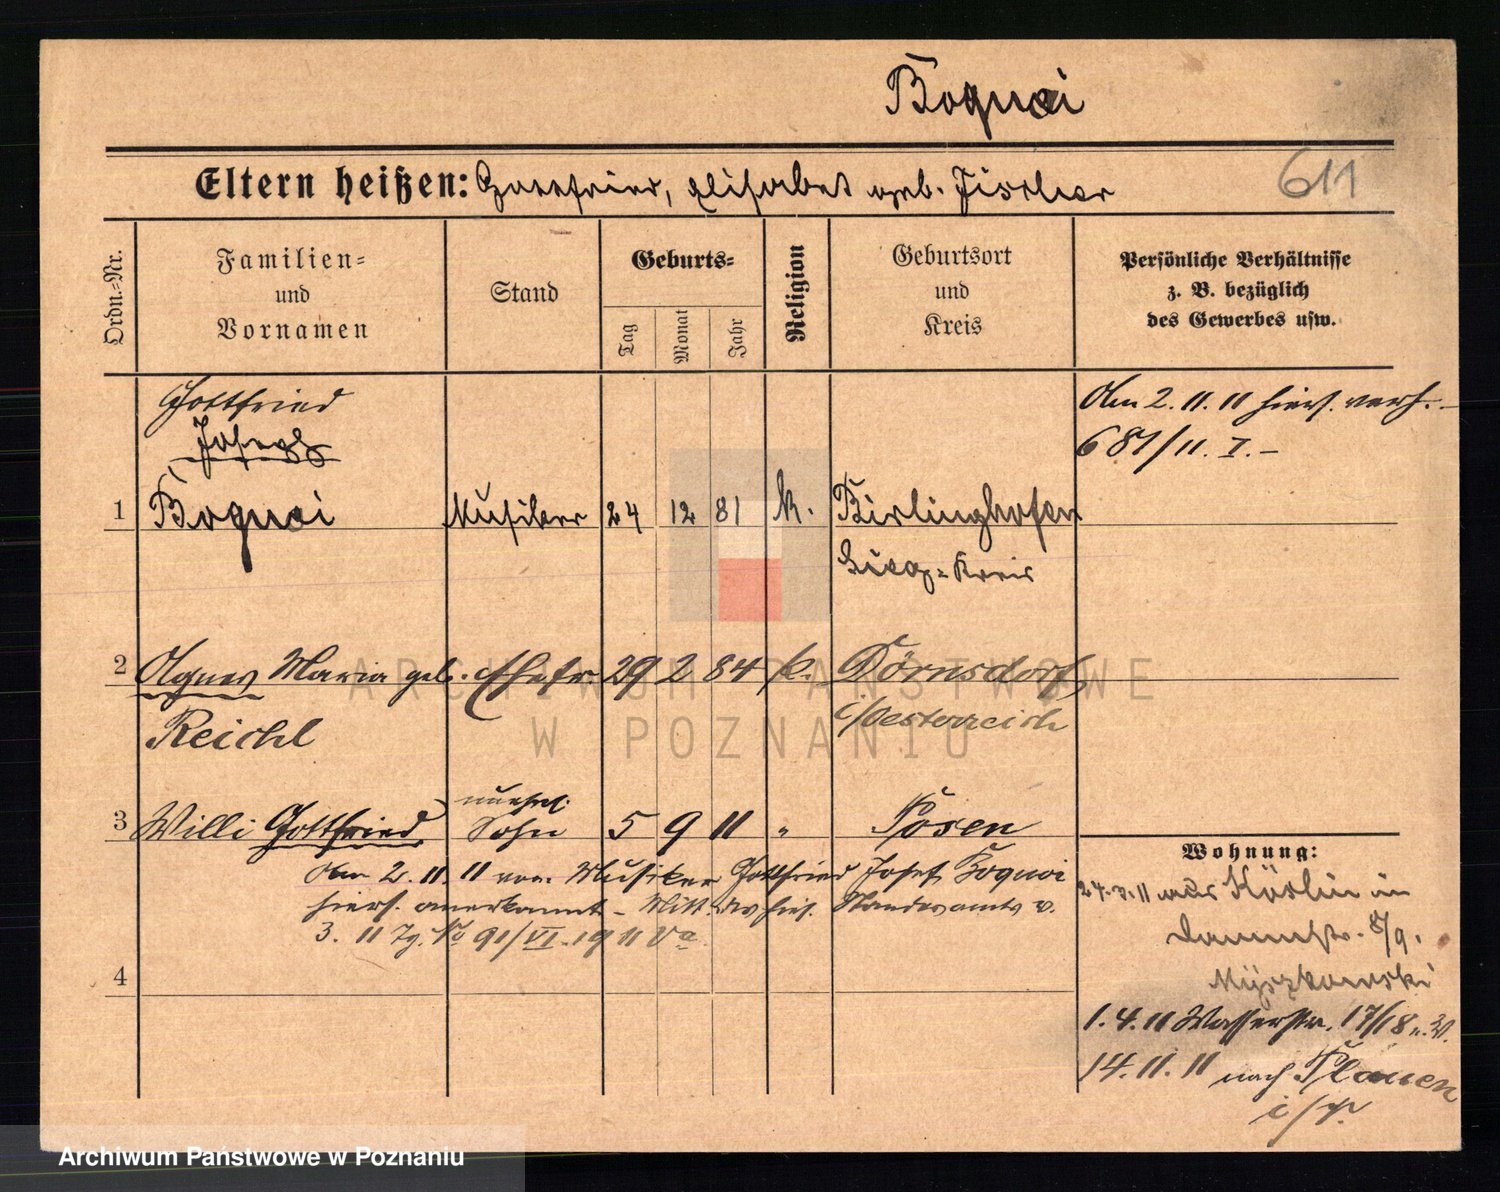 Boquoi
Eltern heißen: Gottfried, Elisabet geb. Fischer
611
Ordn.-Nr.
Familien-
und
Vornamen
Stand
Geburts-
Tag
Monat
Jahr
Religion
Geburtsort
und
Kreis
Persönliche Verhältnisse
z. B. bezüglich
des Gewerbes usw.
Gottfried
Josef
1 Boquoi Musiker 24 12 81 k. Birlinghofen
Sieg-Kreis
Am 2. 11. 11 hiers. verh. -
681/11. I. -
2 Agnes Maria geb. Ehefr. 29 2 84 k. Dörnsdorf
Reichl i/Oesterreich
unehel.
3 Willi Gottfried Sohn 5 9 11 " Posen
Am 2. 11. 11 vom Musiker Gottfried Josef Boquoi
hiers. anerkannt - Mitt. des hies. Standesamts v.
3. 11 Jg. No 91/VI. 1911 Va
4
Wohnung:
24.3.11 aus Köslin in
Dammstr. 8/9.
Myszkowski
1. 4. 11 Wasserstr. 17/18 b. W.
14. 11. 11 nach Plauen
i/V.
ARCHIWUM PAŃSTWOWE
W POZNANIU
Archiwum Państwowe w Poznaniu